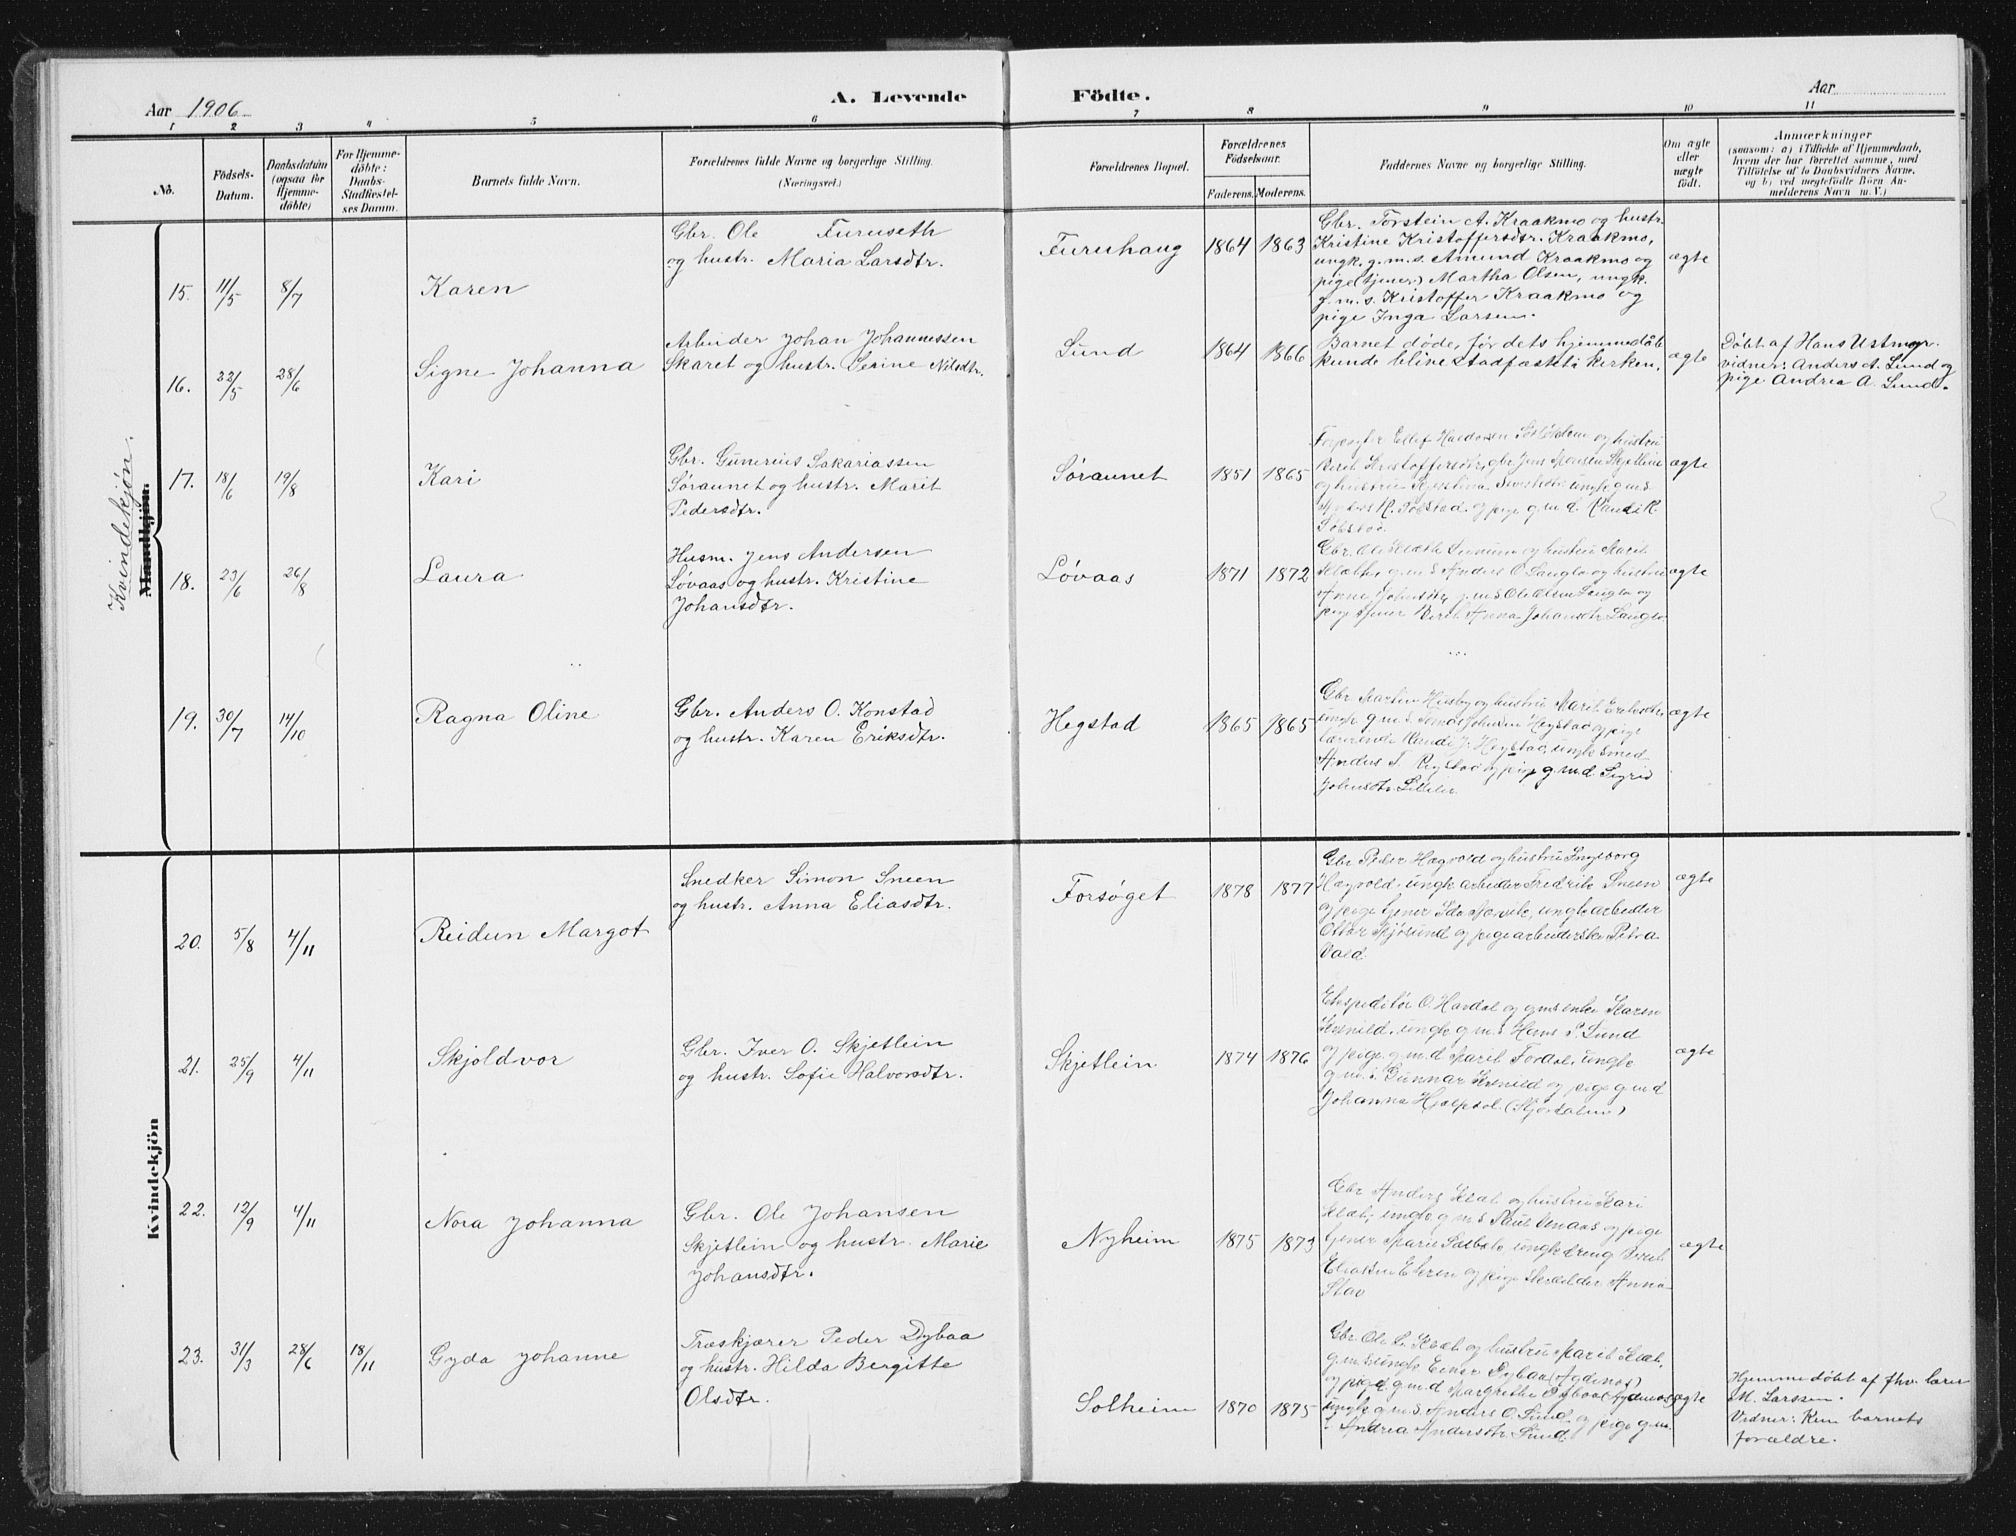 Aar 1906
A. Levende
Födte.
Aar
1 2 3 4 5 6 7 8 9 10 11
No.
Födsels-
Datum.
Daabsdatum
(ogsaa for
Hjemme-
döbte)
For Hjemme-
döbte:
Daabs-
Stadfæstel-
ses Datum.
Barnets fulde Navn.
Forældrenes fulde Navne og borgerlige Stilling.
(Næringsvei.)
Forældrenes Bopæl.
Forældrenes
Födselsaar.
Faderens. Moderens.
Faddernes Navne og borgerlige Stilling.
Om ægte
eller
uægte
födt.
Anmærkninger
(saasom: a) i Tilfælde af Hjemmedaab,
hvem der har forrettet samme, med
Tilföielse af to Daabsvidners Navne,
og b) ved uægtefödte Börn An-
melderens Navn m. V.)
Kvindekjøn.
Mandkjön.
15. 11/5 8/7
Karen
Gbr. Ole Furuseth
og hustr. Maria Larsdtr.
Furuhaug
1864 1863
Gbr. Torstein A. Kraakmo og hustr.
Kristine Kristoffersdtr. Kraakmo,
ungk. g.m.s. Amund Kraakmo og
pige (tjener) Martha Olsen, ungk.
g.m.s. Kristoffer Kraakmo og
pige Inga Larsen.
ægte
16. 22/5 28/6
Signe Johanna
Arbeider Johan Johannessen
Skaret og hustr. Serine Nilsdtr.
Lund
1864 1866
Barnet døde, før dets hjemmedåb
kunde blive stadfæstet i kirken.
ægte
Døbt af Hans Ustmyr.
vidner: Anders A. Lund og
pige Andrea A. Lund.
17. 18/6 19/8
Kari
Gbr. Gunerius Sakariassen
Søraunet og hustr. Marit
Pedersdtr.
Søraunet
1851 1865
Ellef Haldorsen og hustru
Berit Kristoffersdtr, gbr Jens Monsen Skjetlein
og hustru ungk g.m.s
R. Solstad og pige g.m.d. Randi R.
Solstad
ægte
18. 23/6 26/8
Laura
Husm. Jens Andersen
Løvaas og hustr. Kristine
Johansdtr.
Løvaas
1871 1872
Gbr. Ole og hustru Marit
g.m.s Anders O. Langlo og hustru
Anne g.m.s Ole Olsen Langlo og
pige tjener Berit Anna Johansdtr Langlo
ægte
19. 30/7 14/10
Ragna Oline
Gbr. Anders O. Konstad
og hustr. Karen Eriksdtr.
Hegstad
1865 1865
Gbr Martin Husby og hustru Marit
ungk g.m.s Johnsen Hegstad og pige
Randi J. Hegstad, ungk smed
Anders og pige g.m.d. Sigrid
Johnsdtr
ægte
Kvindekjön
20. 5/8 4/11
Reidun Margot
Snedker Simon Sneen
og hustr. Anna Eliasdtr.
Forsøget
1878 1877
Gbr Peder Hægvold og hustru Ingeborg
Hægvold, ungk arbeider Fredrik Sneen
og pige tjener Ida ungk arbeider
Ottar og pige arbeiderske Petra
Vold
ægte
21. 25/9 4/11
Skjoldvor
Gbr. Iver O. Skjetlein
og hustr. Sofie Halvorsdtr.
Skjetlein
1874 1876
Ekspeditør O. Havdal og g.m.s enke Karen
ungk g.m.s Hans P. Lund
og pige g.m.d Marit Fordal, ungk
g.m.s. Gunnar og pige g.m.d
Johanna Hjelpdal (Stjørdalen)
ægte
22. 12/9 4/11
Nora Johanna
Gbr. Ole Johansen
Skjetlein og hustr. Marie
Johansdtr.
Nyheim
1875 1873
Gbr Anders Klæt og hustru Kari
Klæt, ungk g.m.s Paul og pige
tjener Marie ungk dreng
og pige Anna
Stav
ægte
23. 31/3 28/6 18/11
Gyda Johanne
Træskjærer Peder Dybaa
og hustr. Hilda Bergitte
Olsdtr.
Solheim
1870 1875
Gbr Ole L. Klæt og hustru Marit Klæt,
g.m.s ungk Einar Dybaa (Agdenæs)
og pige g.m.d Margrethe Dybaa (Agdenæs)
ungk g.m.s Anders O. Lund og pige g.m.
d. Andrea Andersdtr Lund.
ægte
Hjemmedøbt af fhv. lærer
M. Larssen.
Vidner: Kun barnets
forældre.